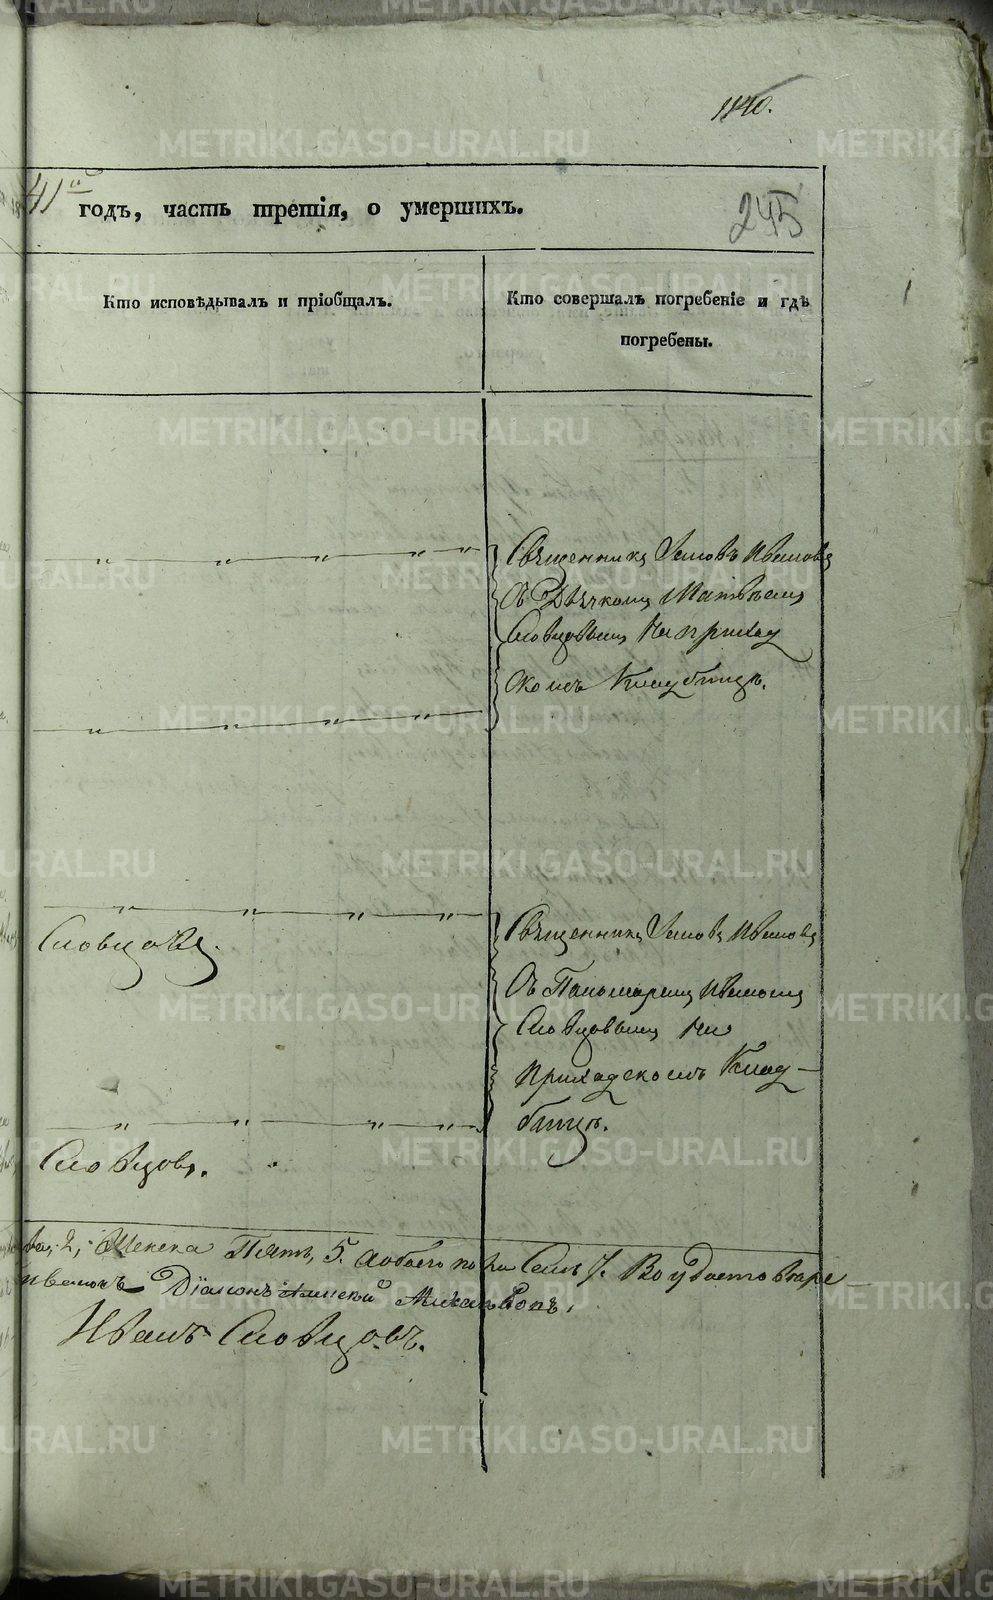 1140.
41й годъ, часть третія, о умершихъ.
245
Кто исповѣдывалъ и пріобщалъ.
Кто совершалъ погребеніе и гдѣ
погребены.
Священникъ Іаковъ Ивановъ
съ Дьячкомъ Матвѣемъ
Словцовымъ на приход
скомъ Кладбищѣ.
Словцовъ.
Священникъ Іаковъ Ивановъ
съ Пономаремъ Иваномъ
Словцовымъ на
Приходскомъ Клад-
бищѣ.
Словцовъ.
2, Женска Пять, 5. обоего пола Семь 7. Во удостовѣре
Ивановъ Діаконъ
Иванъ Словцовъ.
METRIKI.GASO-URAL.RU